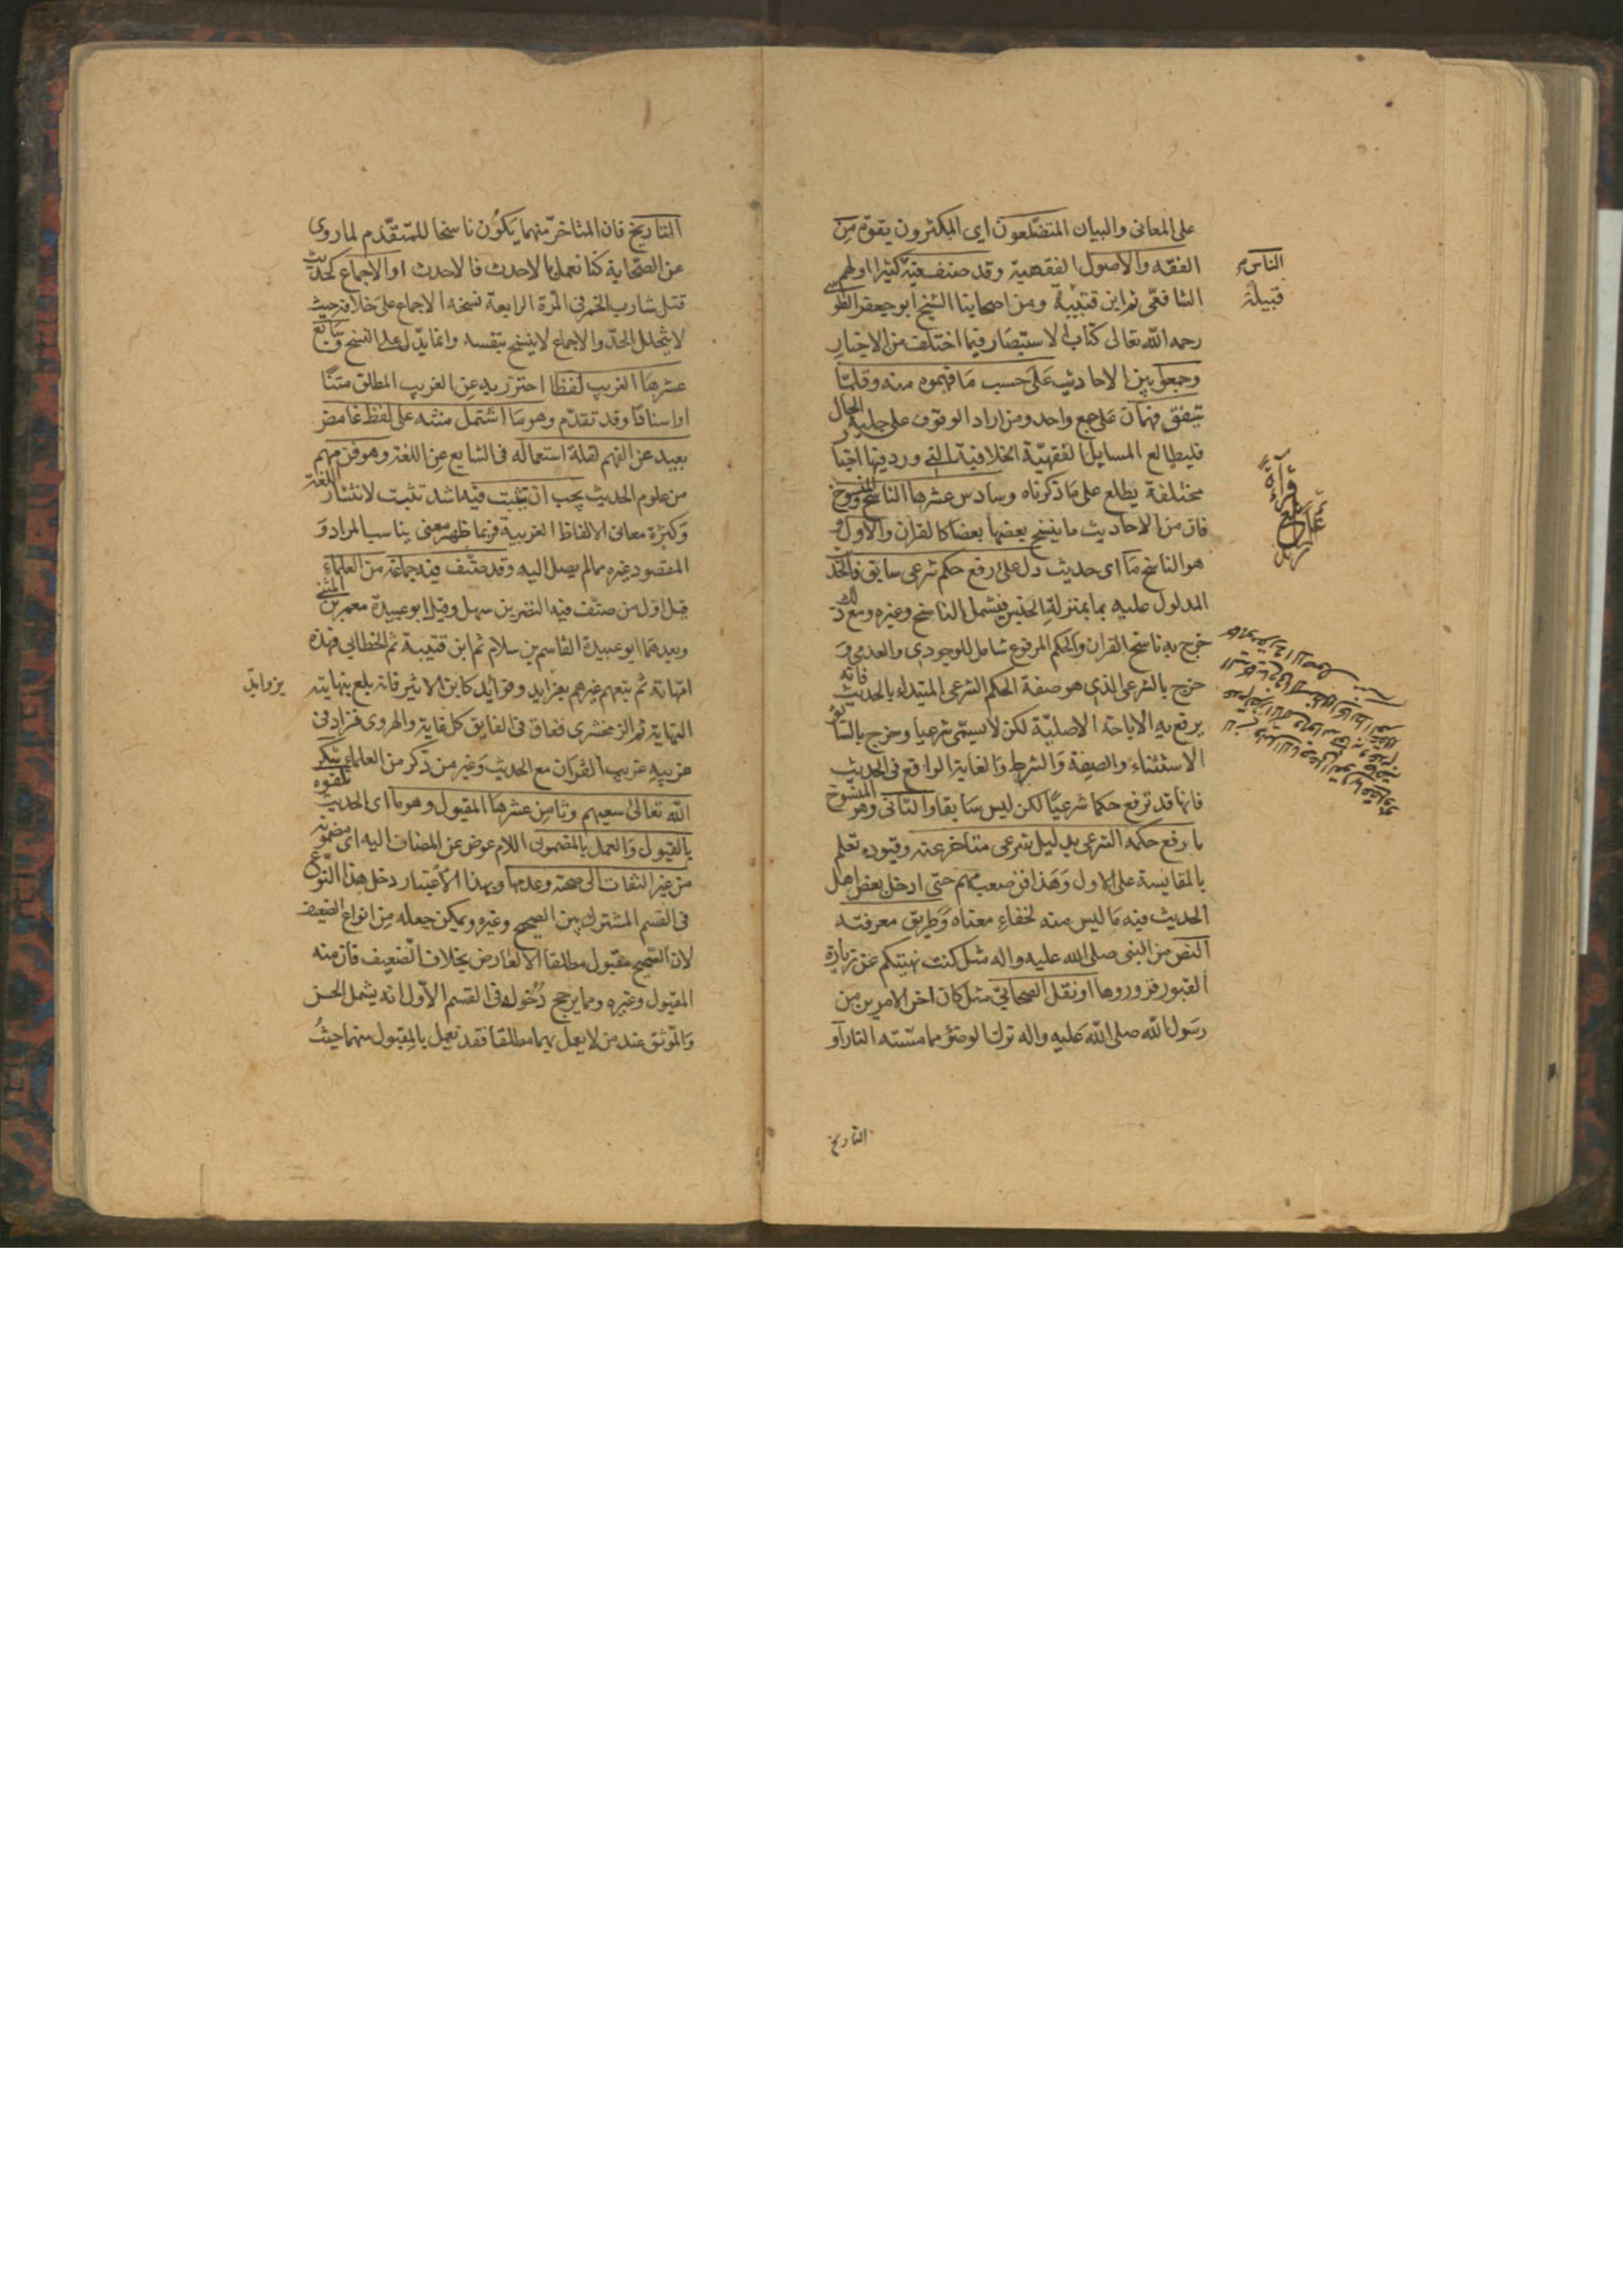 على المعانى والبيان المتضلعون اى المكثرون بقوة من
الفقه والاصول الفقهية وقد صنف فيه كثيرا اولهم
الناس
الشافعى ثم ابن قتيبة ومن اصحابنا الشيخ ابو جعفر الطوسى
قبيلة
رحمه الله تعالى كتاب الاستبصار فيما اختلف من الاخبار
وجمعوا بين الاحاديث على حسب ما فهموه منه وقلما
يتفق فهمان على جمع واحد ومن اراد الوقوف على جلية الحال
فليطالع المسايل الفقهية الخلافية التى ورد فيها اخبا
مختلفة يطلع على ما ذكرناه وسادس عشرها الناسخ والمنسوخ
فان من الاحاديث ما ينسخ بعضها بعضا كالقران والاول
هو الناسخ ما اى حديث دل على رفع حكم شرعى سابق فالحد
المدلول عليه بما بمنزلة الجنس فيشمل الناسخ وغيره ومع ذلك
خرج به ناسخ القران والحكم المرفوع شامل للوجودى والعدمى و
خرج بالشرعى الذى هو صفة الحكم الشرعى المبتداء بالحديث فانه
يرفع به الاباحة الاصلية لكن لا يسمى شرعيا وخرج بالسابق
الاستثناء والصفة والشرط والغاية الواقع فى الحديث
فانها قد ترفع حكما شرعيا لكن ليس سابقا والثانى وهو المنسوخ
ما رفع حكمه الشرعى بدليل شرعى متاخر عنه وقيوده تعلم
بالمقايسة على الاول وهذا فن صعب مهم حتى ادخل بعض اهل
الحديث فيه ما ليس منه لخفاء معناه وطريق معرفته
النص من النبى صلى الله عليه واله مثل كنت نهيتكم عن زيارة
القبور فزوروها او نقل الصحابى مثل كان اخر الامرين من
رسول الله صلى الله عليه واله ترك الوضوء مما مسته النار او
التاريخ
التاريخ فان المتاخر منهما يكون ناسخا للمتقدم لما روى
عن الصحابة كنا نعمل بالاحدث فالاحدث او الاجماع كحديث
قتل شارب الخمر فى المرة الرابعة نسخه الاجماع على خلافه حيث
لا يتخلل الحد والاجماع لا ينسخ بنفسه وانما يدل على النسخ وسابع
عشرها الغريب لفظا احترز به عن الغريب المطلق متنا
او اسنادا وقد تقدم وهو ما اشتمل متنه على لفظ غامض
بعيد عن الفهم لقلة استعماله فى الشايع عن اللغة وهو فن مهم
من علوم الحديث يجب ان يتثبت فيه اشد تثبت لانتشار اللغة
وكثرة معانى الالفاظ الغريبة فربما ظهر معنى يناسب المراد و
المقصود غيره مما لم يصل اليه وقد صنف فيه جماعة من العلماء
قيل اول من صنف فيه النضر بن سهل وقيل ابو عبيدة معمر بن المثنى
وبعدهما ابو عبيدة القاسم بن سلام ثم ابن قتيبة ثم الخطابى فهذه
امهاته ثم تبعهم غيرهم بفرايد وفوائد كابن الاثير فانه بلغ بنهايته
بزوايد
النهاية ثم الزمخشرى ففاق فى الفايق كل غاية والهروى فزاد فى
غريبيه غريب القران مع الحديث وغير من ذكر من العلماء شكر
الله تعالى سعيهم وثامن عشرها المقبول وهو ما اى الحديث تلقوه
بالقبول والعمل بالمضمون اللام عوض عن المضاف اليه اى مضمونه
من غير التفات الى صحته وعدمها وبهذا الاعتبار دخل هذا النوع
فى القسم المشترك بين الصحيح وغيره ويمكن جعله من انواع الضعيف
لان الصحيح مقبول مطلقا الا لعارض بخلاف الضعيف فان منه
المقبول وغيره ومما يرجح دخوله فى القسم الاول انه يشمل الحسن
والموثق عند من لا يعمل بهما مطلقا فقد يعمل بالمقبول منهما حيث